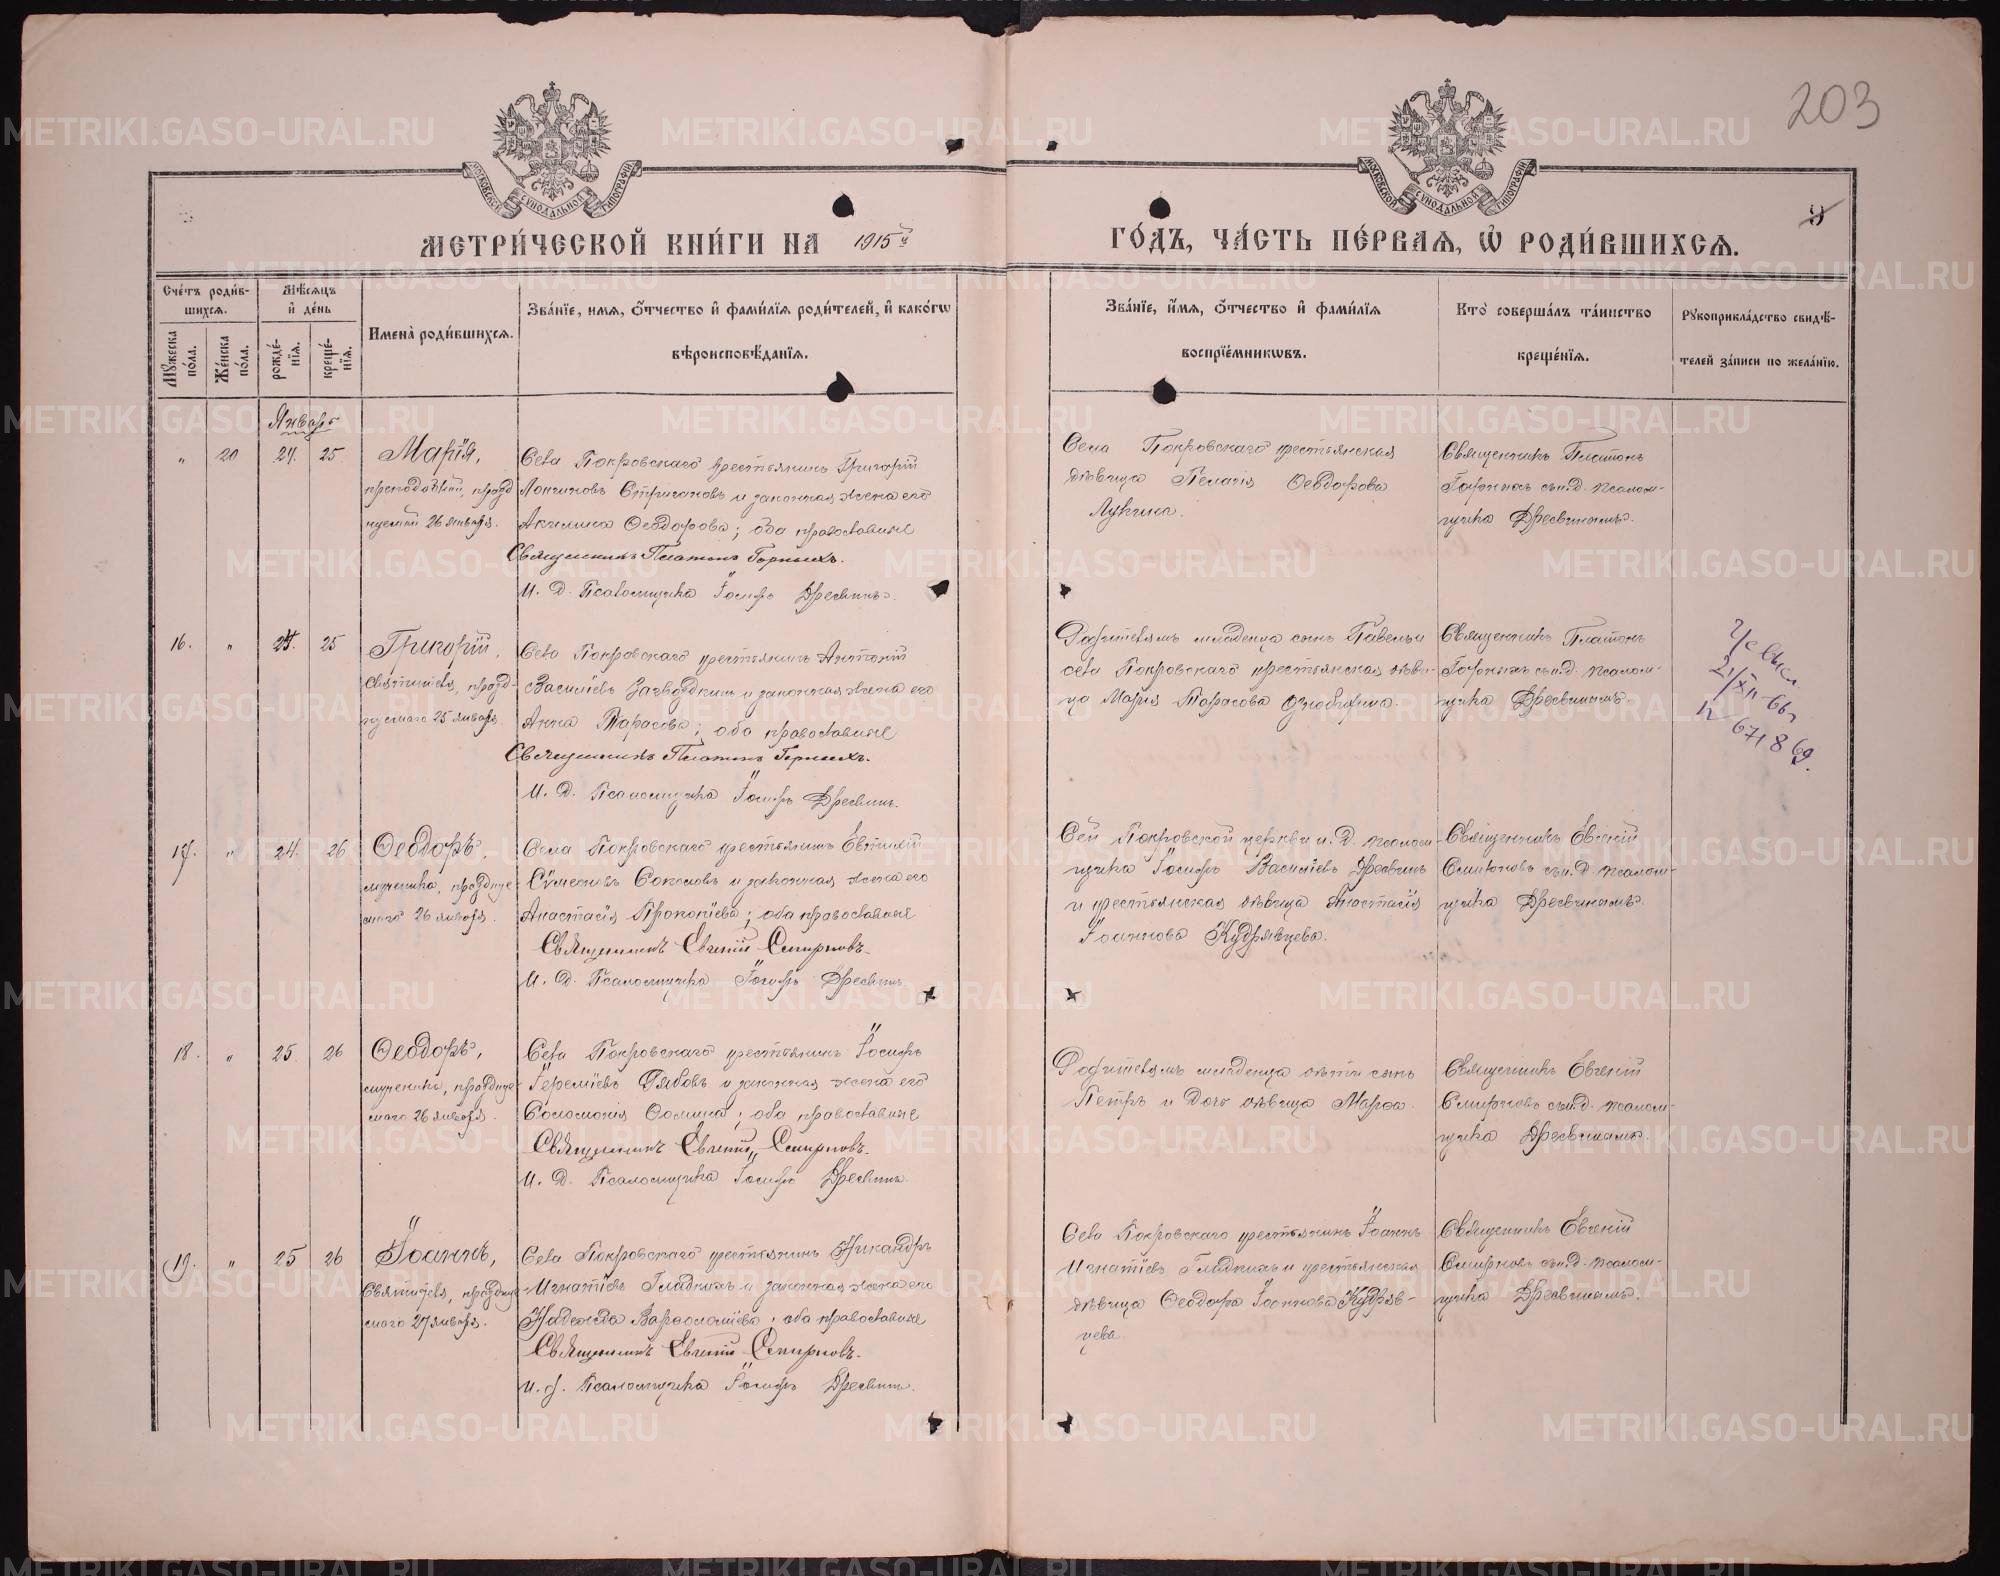 203
МОСКОВСКОЙ СѴНОДАЛЬНОЙ ТИПОГРАФІИ
МОСКОВСКОЙ СѴНОДАЛЬНОЙ ТИПОГРАФІИ
МЕТРИ́ЧЕСКОЙ КНИ́ГИ НА 1915й
ГО́ДЪ, ЧА́СТЬ ПЕ́РВАѦ, Ѽ РОДИ́ВШИХСѦ.
Сче́тъ роди́в-
шихсѧ.
Мѣ́сѧцъ
и҆ де́нь
Мꙋ́жеска по́ла.
Же́нска по́ла.
рожде́-
нїѧ.
креще́-
нїѧ.
И҆мена̀ роди́вшихсѧ.
Зва́нїе, и҆мѧ, ѻ҆́тчество и҆ фами́лїѧ роди́телей, и҆ како́гѡ
вѣроисповѣ́данїѧ.
Зва́нїе, и҆́мѧ, ѻ҆́тчество и҆ фами́лїѧ
воспрїе́мникѡвъ.
Кто̀ соверша́лъ та́инство
креще́нїѧ.
Рꙋкоприкла́дство свидѣ́-
телей за́писи по жела́нїю.
Январь
" 20 24. 25
Марія,
преподобной, празд
нуемой 26 января.
Села Покровскаго крестьянинъ Григорій
Логиновъ Стригановъ и законная жена его
Акилина Ѳеодорова; оба православные
Священникъ Платонъ Горныхъ.
И. Д. Псаломщика Іосифъ Дресвинъ.
Села Покровскаго крестьянская
дѣвица Пелагія Ѳеодорова
Лукина.
Священникъ Платонъ
Горныхъ съ и.д. псалом-
щика Дресвинымъ.
16. " 24. 25
Григорій,
Святителя, празд-
нуемаго 25 января.
Села Покровскаго крестьянинъ Антоній
Василіевъ Загвоздкинъ и законная жена его
Анна Тарасова; оба православные
Священникъ Платонъ Горныхъ.
И. Д. Псаломщика Іосифъ Дресвинъ.
Родителямъ младенца сынъ Павелъ и
села Покровскаго крестьянская дѣви-
ца Марія Тарасова
Священникъ Платонъ
Горныхъ съ и.д. псалом-
щика Дресвинымъ.
2/XII-66г
N 671869.
17. " 24. 26
Ѳеодоръ,
мученика, празднуе-
маго 26 января.
Села Покровскаго крестьянинъ Евтихій
Сѵмеоновъ Соколовъ и законная жена его
Анастасія Прокопіева; оба православные
Священникъ Евгеній Смирновъ.
И. Д. Псаломщика Іосифъ Дресвинъ.
Сей Покровской церкви и. д. псалом
щика Іосифъ Василіевъ Дресвинъ
и крестьянская дѣвица Анастасія
Іоаннова Кудрявцева.
Священникъ Евгеній
Смирновъ съ и.д. псалом-
щика Дресвинымъ.
18. " 25. 26
Ѳеодоръ,
мученика, празднуе-
маго 26 января.
Села Покровскаго крестьянинъ Іосифъ
Іереміевъ Рябовъ и законная жена его
Соломонія Ѳомина; оба православные
Священникъ Евгеній Смирновъ.
И. Д. Псаломщика Іосифъ Дресвинъ
Родителямъ младенца дѣти сынъ
Петръ и дочь дѣвица Марѳа.
Священникъ Евгеній
Смирновъ съ и.д. псалом-
щика Дресвинымъ.
19. " 25 26
Іоаннъ,
Святителя, праздну
емаго 27 января.
Села Покровскаго крестьянинъ Никандръ
Игнатіевъ Гладкихъ и законная жена его
Надежда Варѳоломіева; оба православные
Священникъ Евгеній Смирновъ.
И. д. Псаломщика Іосифъ Дресвинъ.
Села Покровскаго крестьянинъ Іоаннъ
Игнатіевъ Гладкихъ и крестьянская
дѣвица Ѳеодора Іоаннова Кудряв-
цева.
Священникъ Евгеній
Смирновъ съ и.д. псалом-
щика Дресвинымъ.
METRIKI.GASO-URAL.RU